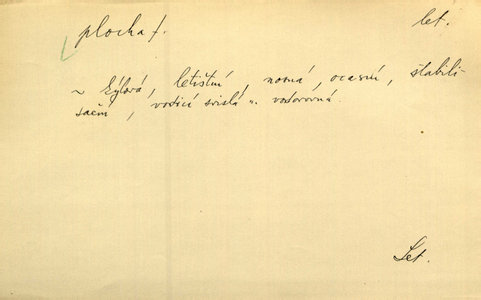 plocha f. let.
~ kýlová, letištní, nosná, ocasní, stabili-
sační, vodicí svislá n. vodorovná.
Let.